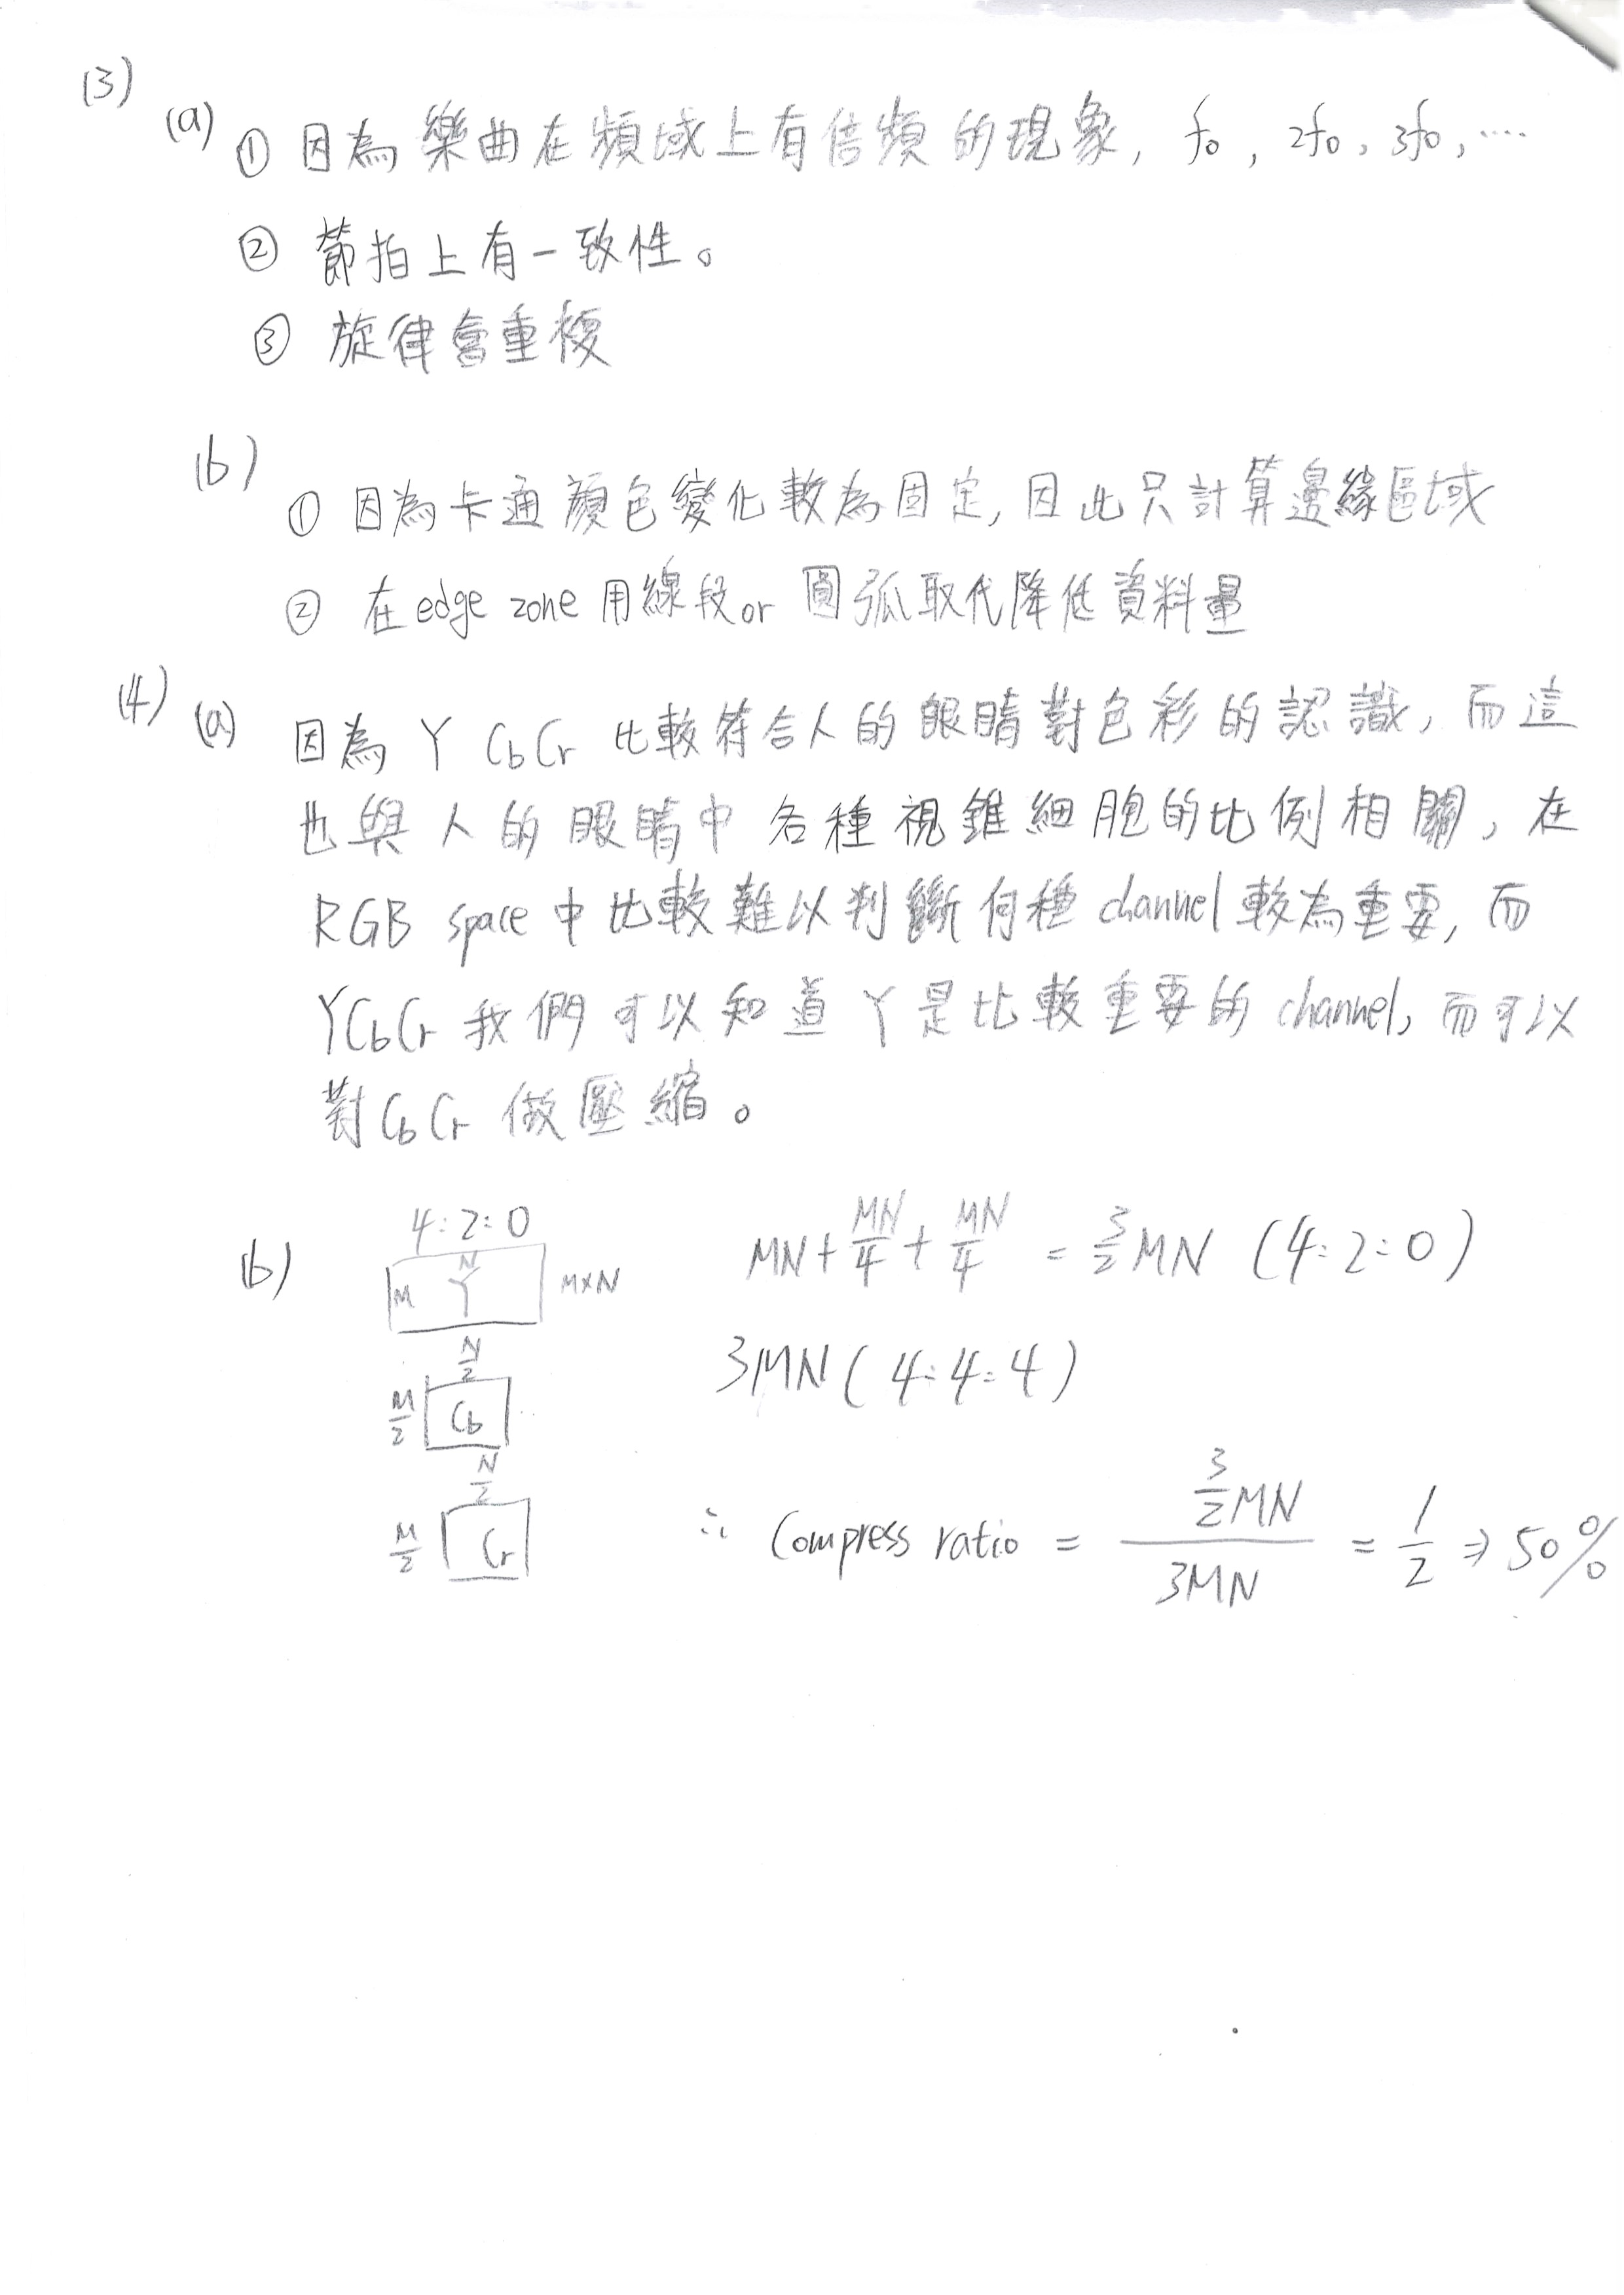 (3)
(a) ① 因為樂曲在頻域上有倍頻的現象, f0, 2f0, 3f0, ....
② 節拍上有一致性。
③ 旋律會重複
(b)
① 因為卡通顏色變化較為固定, 因此只計算邊緣區域
② 在 edge zone 用線段 or 圓弧取代降低資料量
(4) (a) 因為 Y CbCr 比較符合人的眼睛對色彩的認識, 而這
也與人的眼睛中各種視錐細胞的比例相關, 在
RGB space 中比較難以判斷何種 channel 較為重要, 而
YCbCr 我們可以知道 Y 是比較重要的 channel, 而可以
對 CbCr 做壓縮。
(b) 4:2:0
N
M Y M×N
N/2
M/2 Cb
N/2
M/2 Cr
MN + MN/4 + MN/4 = 3/2 MN (4:2:0)
3MN (4:4:4)
∴ Compress ratio = 3/2 MN / 3MN = 1/2 ⇒ 50%